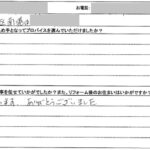 お電話:
め手となってプロバイスを選んでいただけましたか?
事を任せていかがでしたか?また、リフォーム後のお住まいはいかがですか?
ます。ありがとうございました